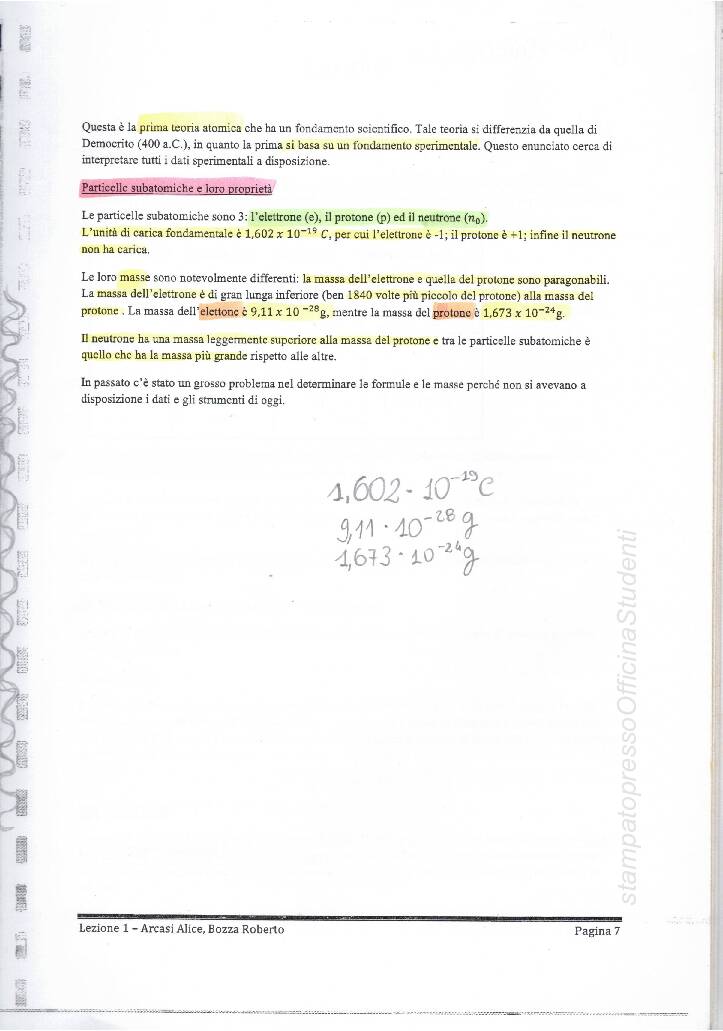 Questa è la prima teoria atomica che ha un fondamento scientifico. Tale teoria si differenzia da quella di
Democrito (400 a.C.), in quanto la prima si basa su un fondamento sperimentale. Questo enunciato cerca di
interpretare tutti i dati sperimentali a disposizione.
Particelle subatomiche e loro proprietà
Le particelle subatomiche sono 3: l'elettrone (e), il protone (p) ed il neutrone (n₀).
L'unità di carica fondamentale è 1,602 x 10⁻¹⁹ C, per cui l'elettrone è -1; il protone è +1; infine il neutrone
non ha carica.
Le loro masse sono notevolmente differenti: la massa dell'elettrone e quella del protone sono paragonabili.
La massa dell'elettrone è di gran lunga inferiore (ben 1840 volte più piccolo del protone) alla massa del
protone . La massa dell'elettone è 9,11 x 10 ⁻²⁸g, mentre la massa del protone è 1,673 x 10⁻²⁴g.
Il neutrone ha una massa leggermente superiore alla massa del protone e tra le particelle subatomiche è
quello che ha la massa più grande rispetto alle altre.
In passato c'è stato un grosso problema nel determinare le formule e le masse perché non si avevano a
disposizione i dati e gli strumenti di oggi.
1,602 · 10⁻¹⁹ C
9,11 · 10⁻²⁸ g
1,673 · 10⁻²⁴ g
stampatopressoOfficinaStudenti
Lezione 1 – Arcasi Alice, Bozza Roberto
Pagina 7